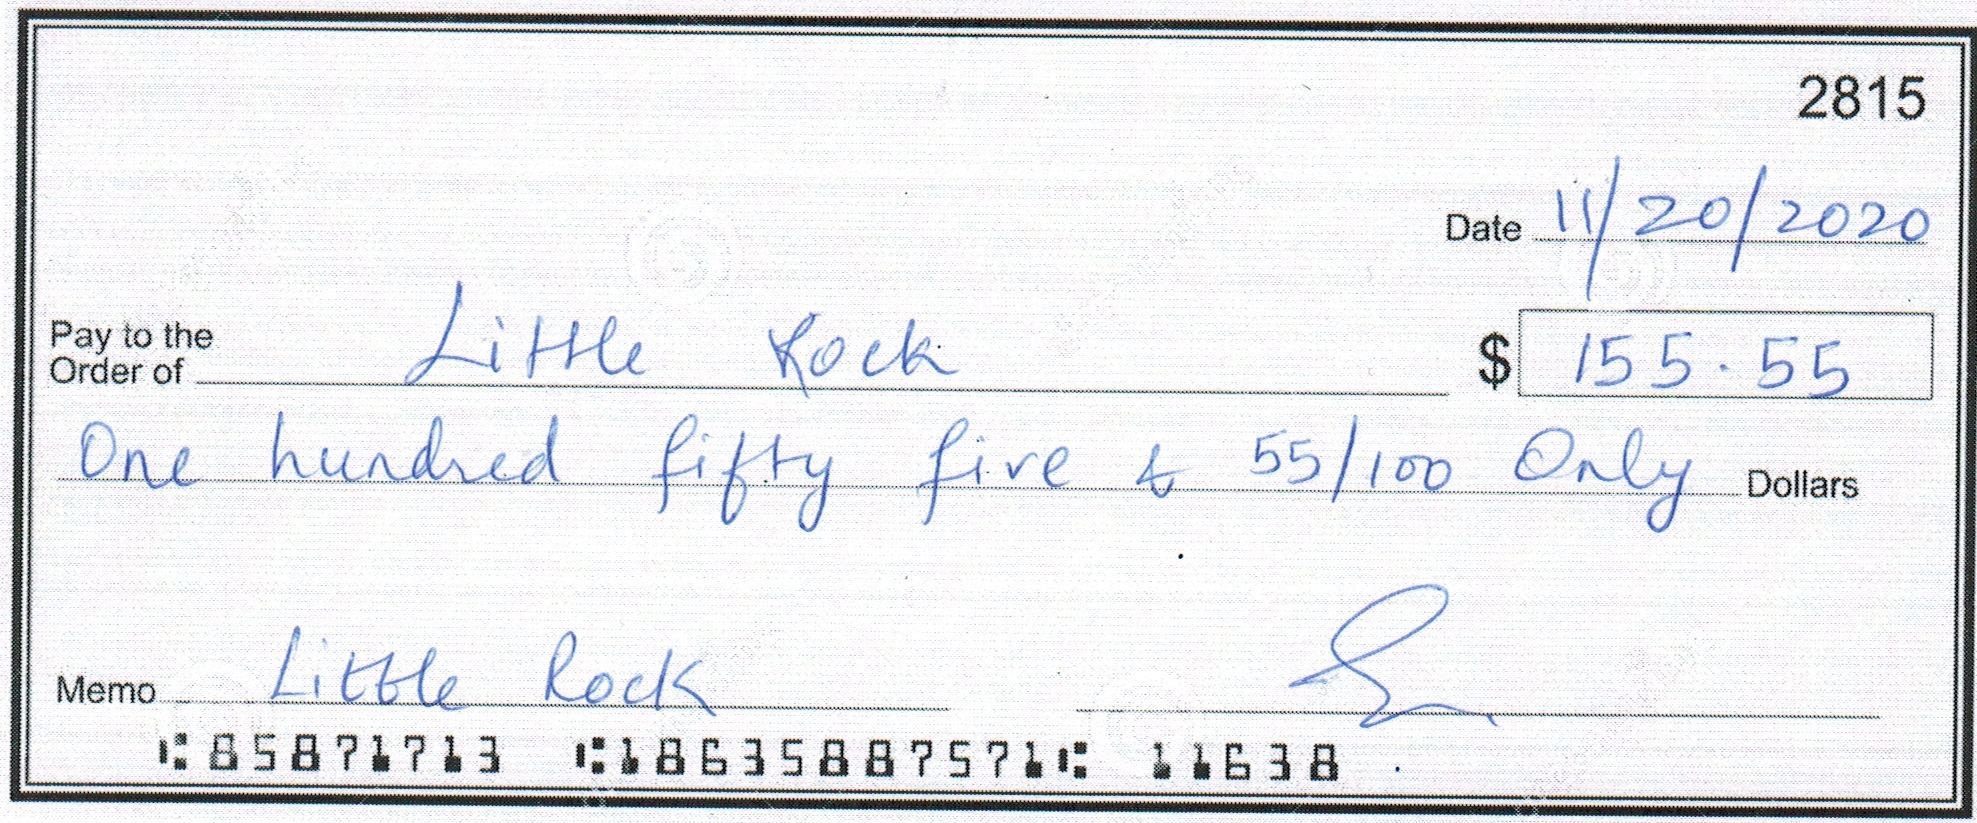 2815
Date 11/20/2020
Pay to the
Order of Little Rock $ 155.55
One hundred fifty five & 55/100 Only Dollars
Memo Little Rock
⑆85871713 ⑆18635887571⑆ 11638